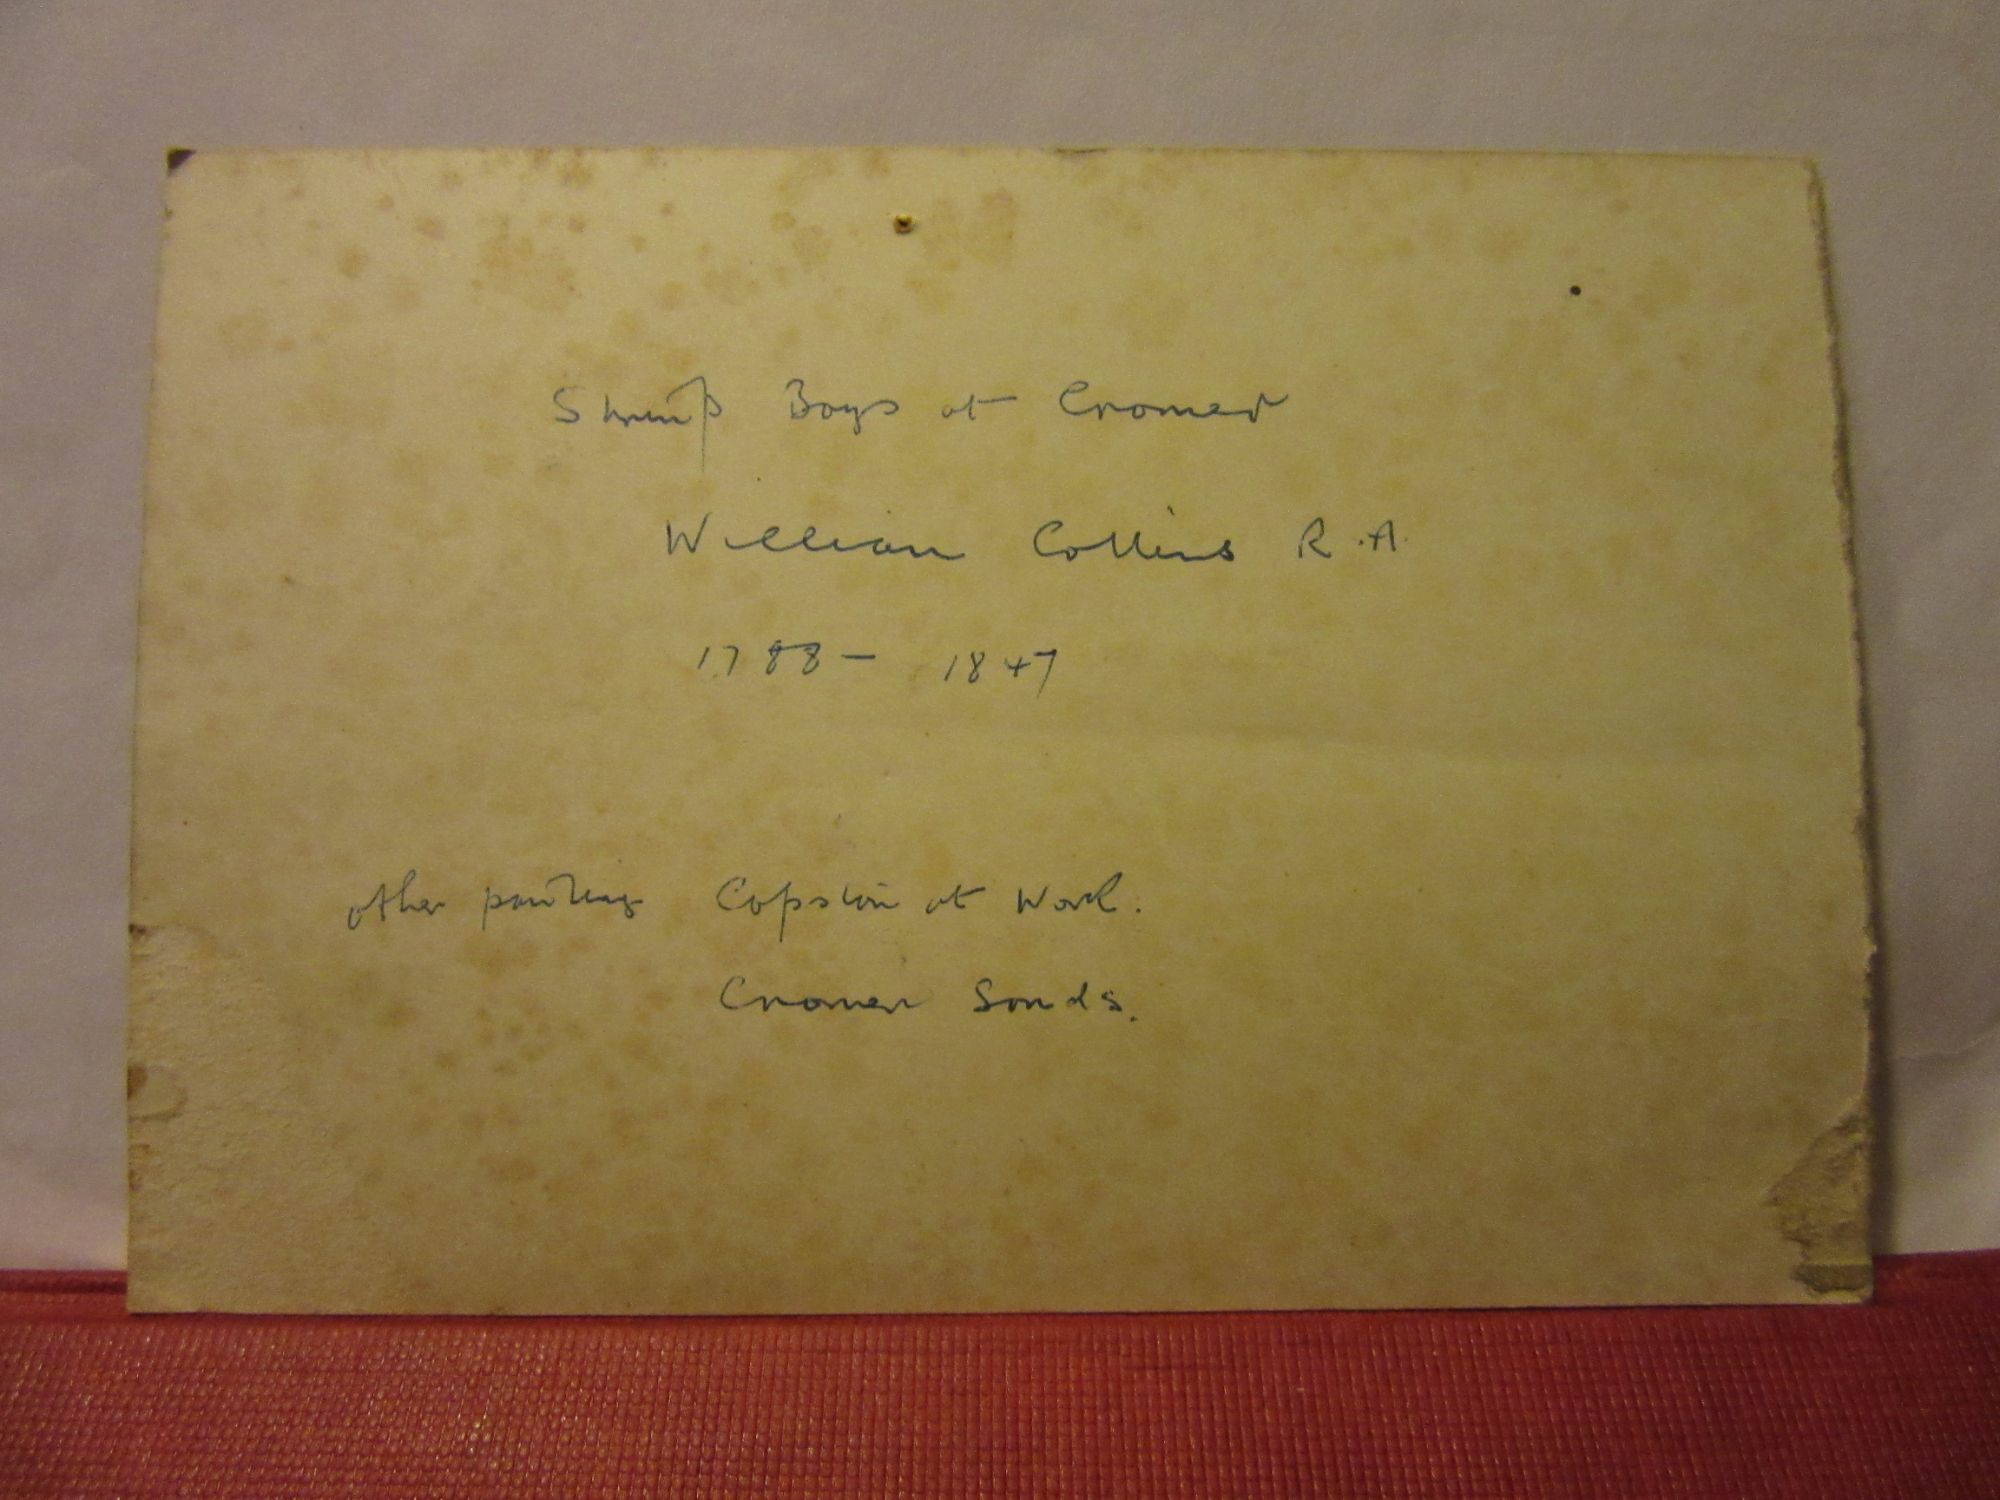 Shrimp Boys at Cromer
William Collins R.A.
1788 - 1847
other painting Capstan at Work.
Cromer Sands.